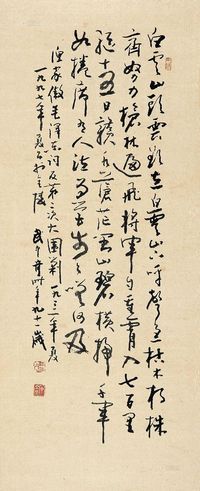 白雲山頭雲欲立白雲山下呼聲急枯木朽株
齊努力槍林逼飛將軍自重霄入七百里
驅十五日贛水蒼茫閩山碧橫掃千軍
如捲席有人泣為營步步嗟何及
漁家傲毛澤東詞反第二次大圍剿一九三一年夏
一九九七年夏於金陵武中奇時年九十一歲